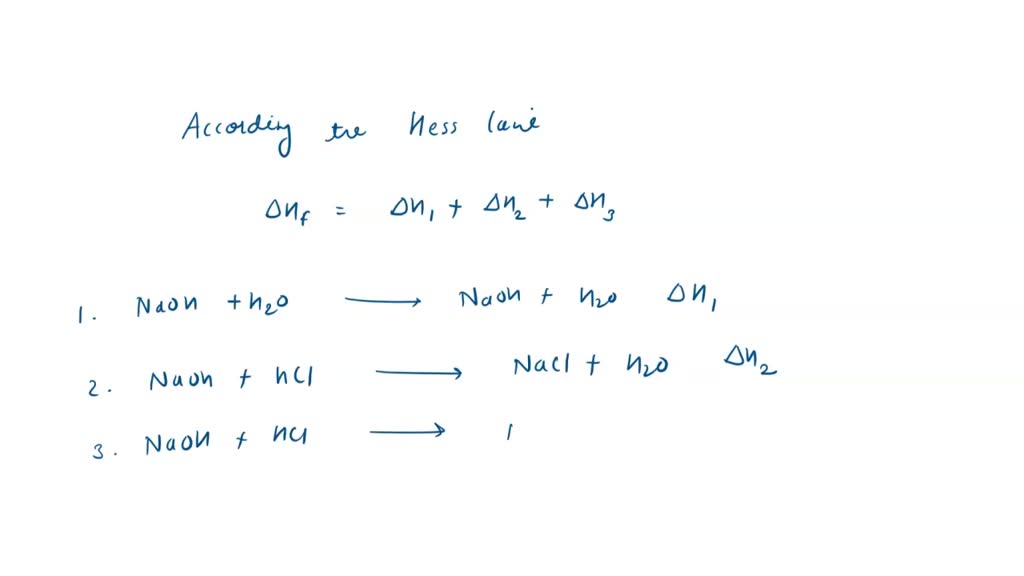 According the Hess law
ΔH_f = ΔH₁ + ΔH₂ + ΔH₃
1. NaOH + H₂O ⟶ NaOH + H₂O ΔH₁
2. NaOH + HCl ⟶ NaCl + H₂O ΔH₂
3. NaOH + HCl ⟶ |